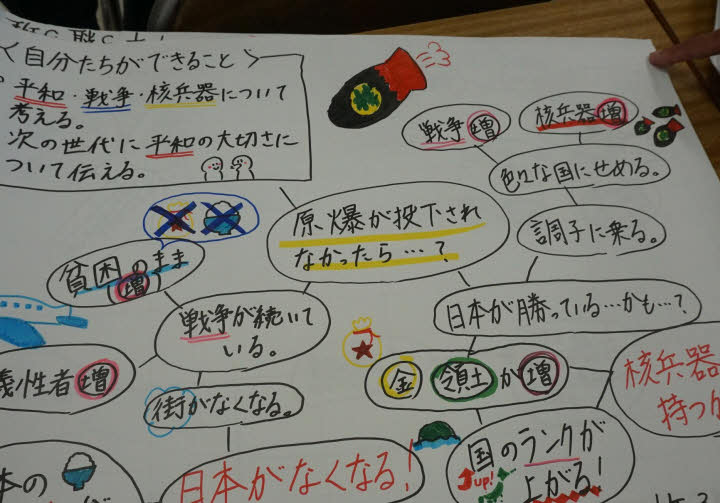 〈自分たちができること〉
平和・戦争・核兵器について
考える。
次の世代に平和の大切さに
ついて伝える。
原爆が投下され
なかったら…？
戦争増
核兵器増
色々な国にせめる。
調子に乗る。
日本が勝っている…かも…？
金 領土が増
核兵器
持つか
国のランクが
up!
上がる！
貧困のまま
（増）
戦争が続いて
いる。
犠牲者増
街がなくなる。
日本がなくなる！
本の